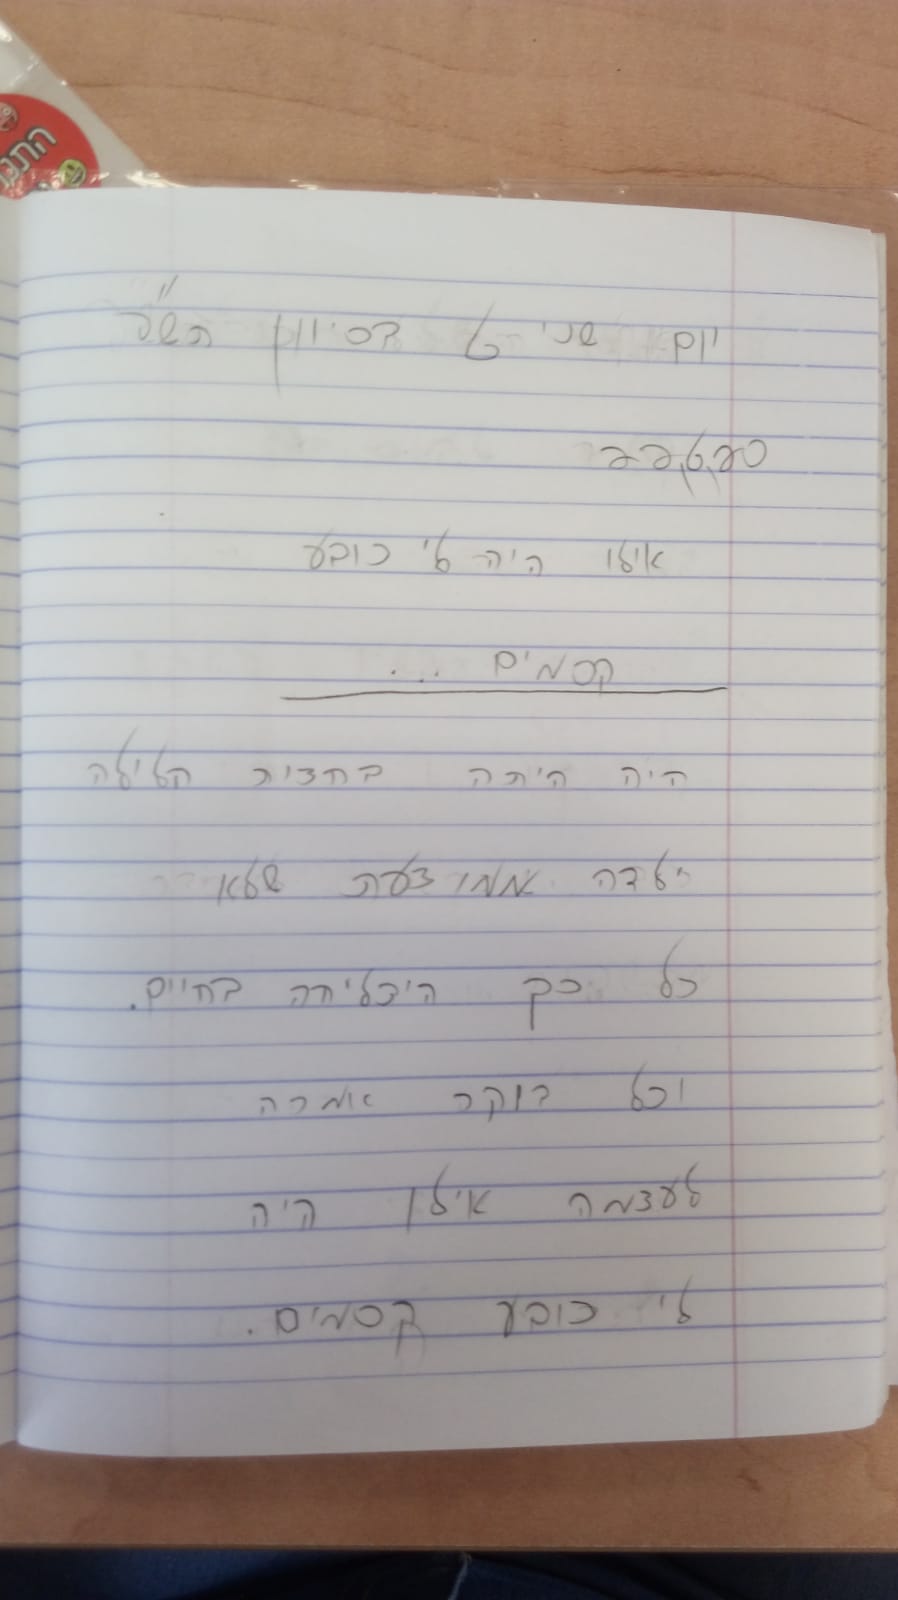 יום שני ט בסיוון תש"פ
אילו היה לי כובע
קסמים ...
היה היתה בחצית הלילה
ילדה ממוצעת שלא
כל כך היצליחה בחיים.
וכל בוקר אמרה
לעצמה אילו היה
לי כובע קסמים.